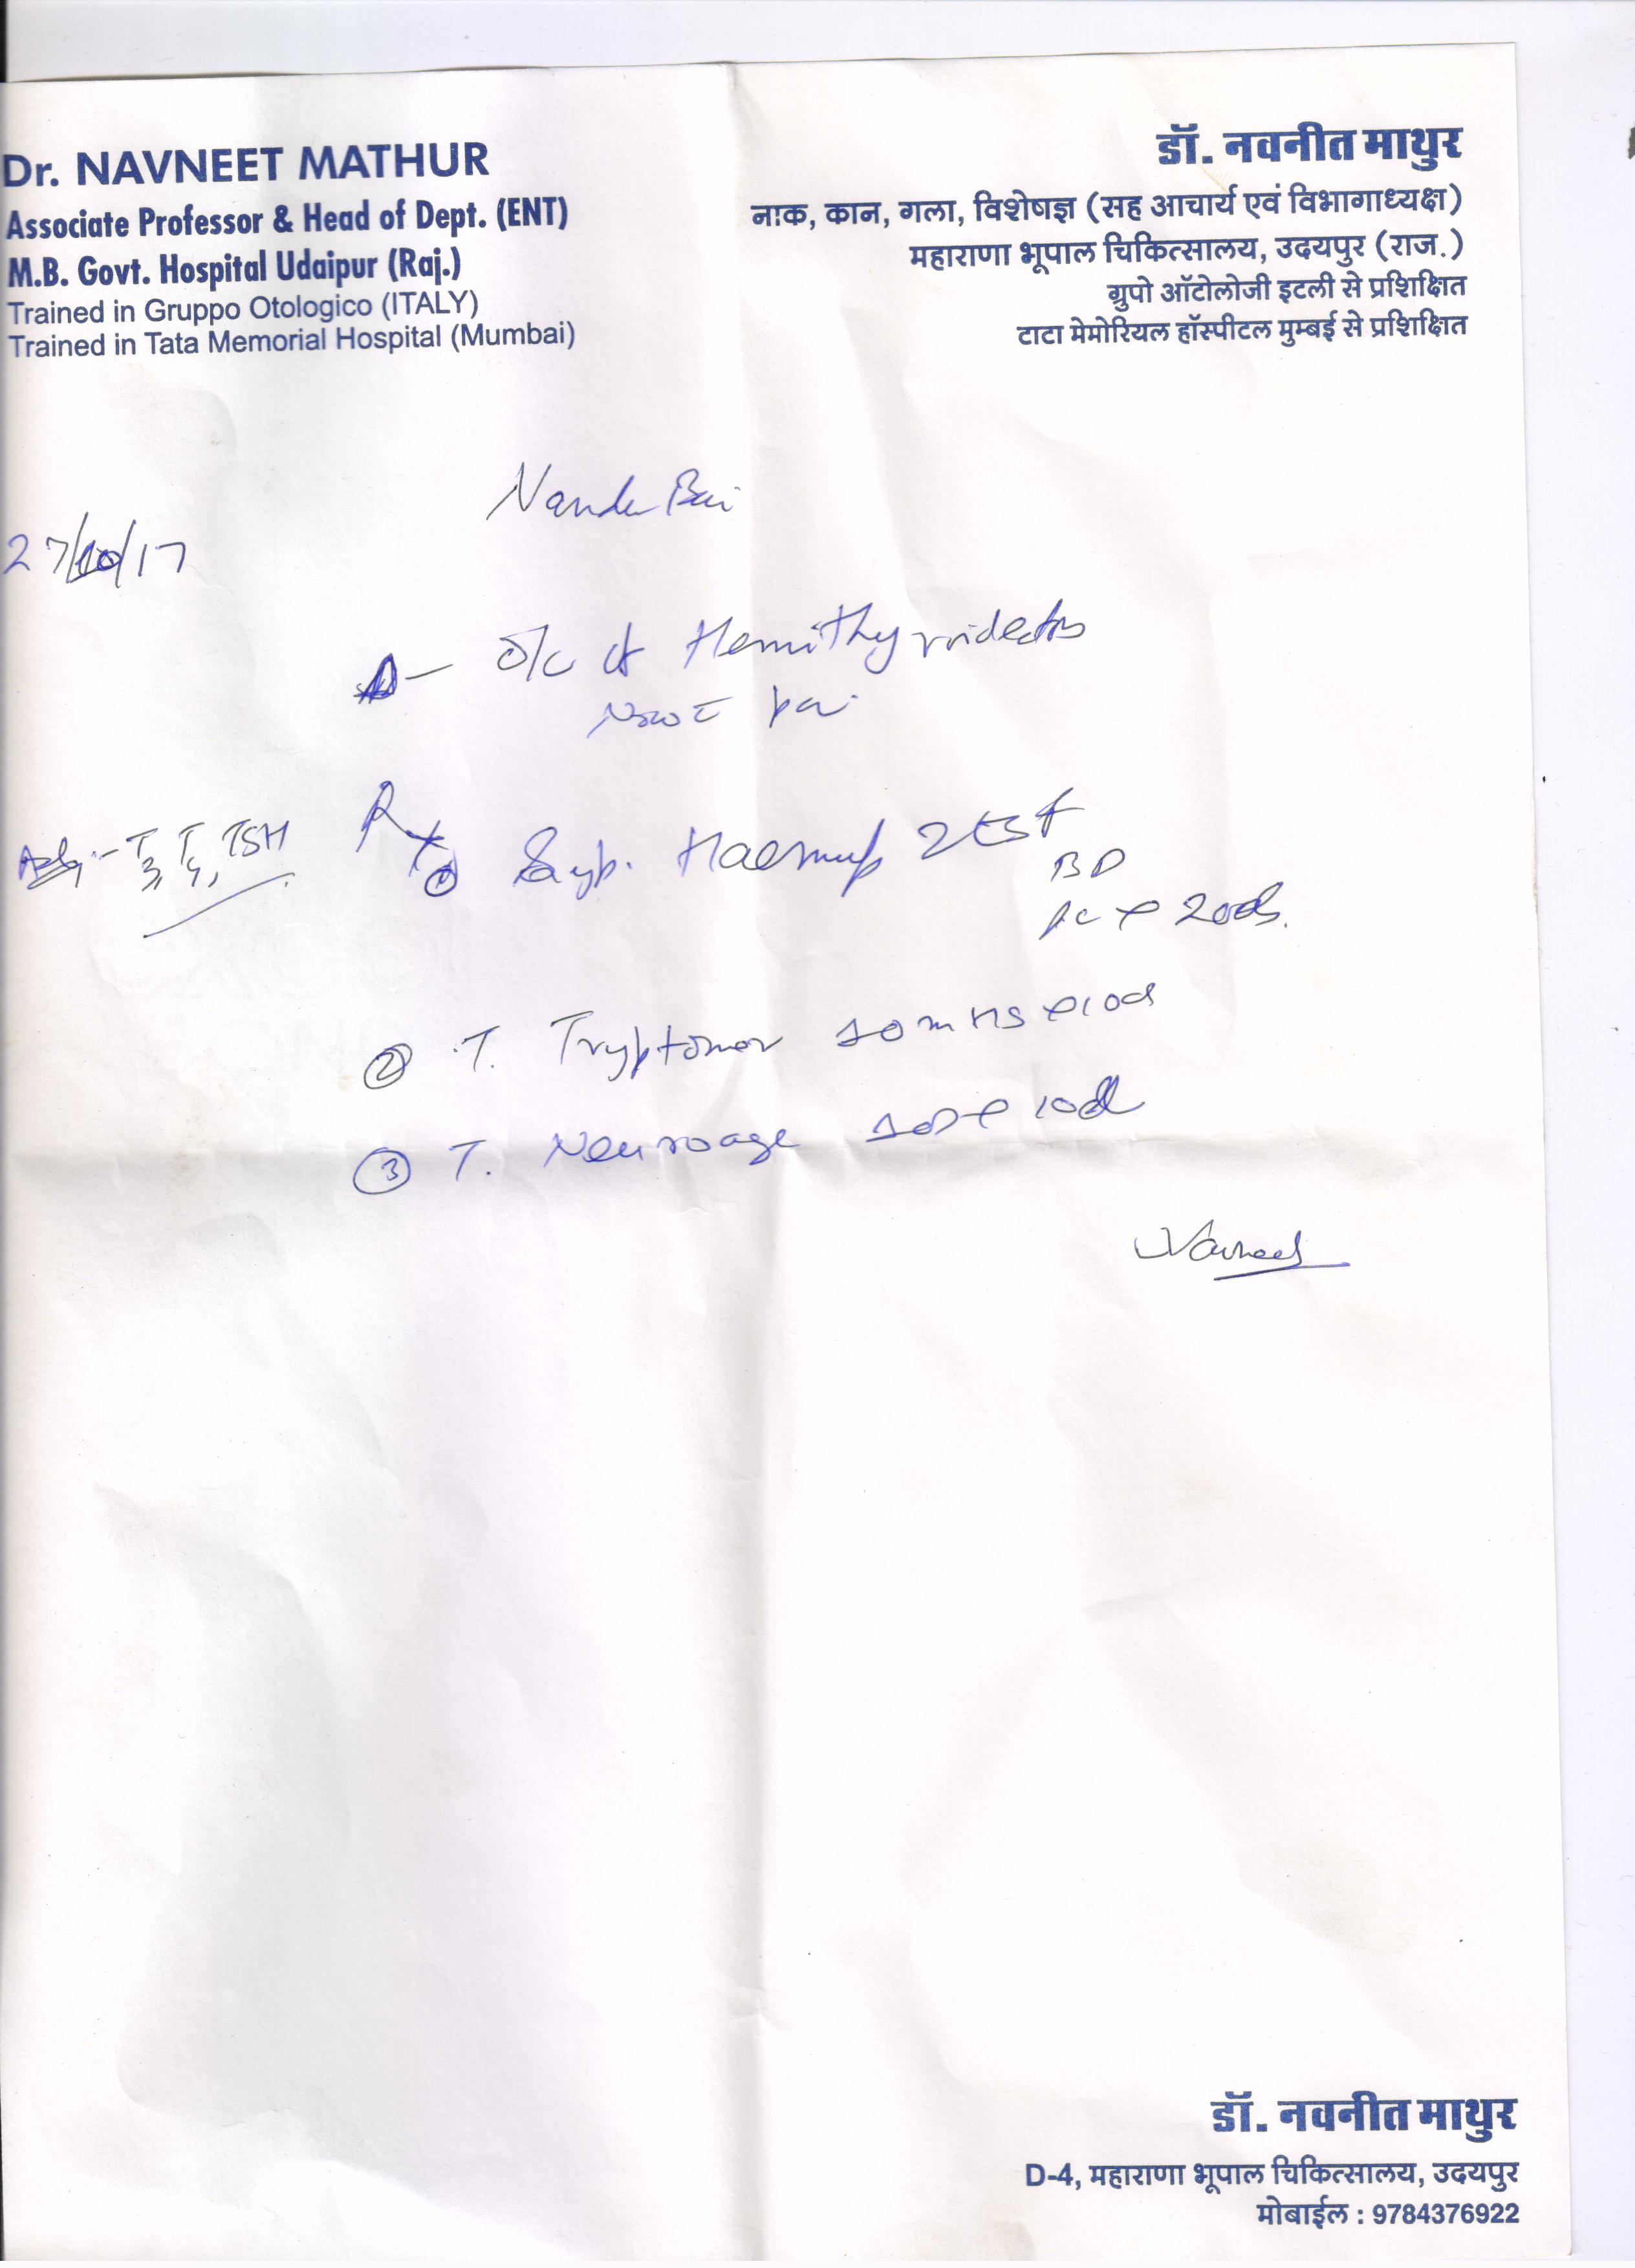 Dr. NAVNEET MATHUR
Associate Professor & Head of Dept. (ENT)
M.B. Govt. Hospital Udaipur (Raj.)
Trained in Gruppo Otologico (ITALY)
Trained in Tata Memorial Hospital (Mumbai)
डॉ. नवनीत माथुर
नाक, कान, गला, विशेषज्ञ (सह आचार्य एवं विभागाध्यक्ष)
महाराणा भूपाल चिकित्सालय, उदयपुर (राज.)
ग्रुपो ऑटोलोजी इटली से प्रशिक्षित
टाटा मेमोरियल हॉस्पीटल मुम्बई से प्रशिक्षित
Bai
27/10/17
Hemithyroidectomy
Now
T3, T4, TSH
Rx
① Syp. 2tsf
BD
② T. Tryptomer 10m HS
③ T. Neuroage
Navneet
डॉ. नवनीत माथुर
D-4, महाराणा भूपाल चिकित्सालय, उदयपुर
मोबाईल : 9784376922